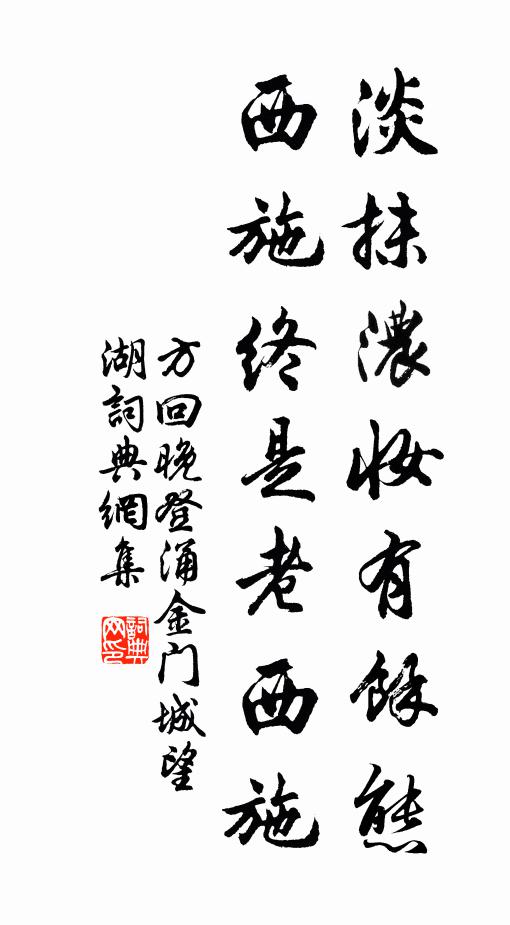 淡抹濃妝有餘態
西施終是老西施
方回晚登涌金门城望
湖詞典網集
詞典網印